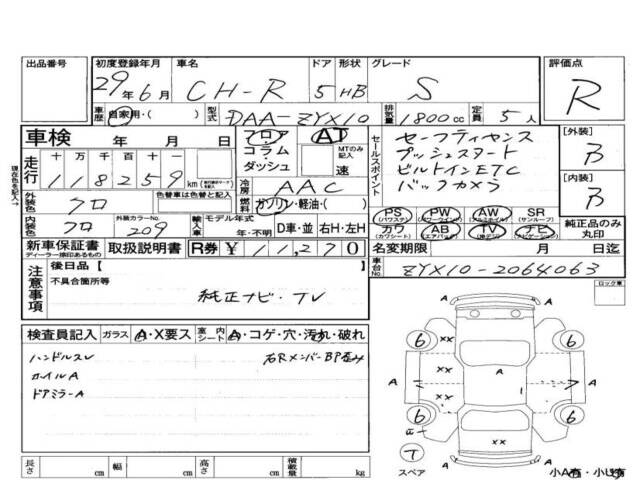 出品番号 初度登録年月 車名 ドア 形状 グレード 評価点
29年6月 CH-R 5 HB S R
車歴 自家用・( ) 型式 DAA-ZYX10 排気量 1800cc 定員 5人
車検 年 月 日 フロア コラム・ダッシュ AT MTのみ記入 速
走行 十万千百十 118259km
冷房 AAC
外装色 クロ 色替車は色替前の色 燃料 ガソリン・軽油・( )
内装色 クロ 外装カラーNo. 209 輸入車 モデル年式 年・不明 D車・並 右H・左H
セールスポイント
セーフティセンス
プッシュスタート
ビルトインETC
バックカメラ
[外装] B
[内装] B
PS (パワステ) PW (パワーウインド) AW (アルミホイル) SR (サンルーフ)
カワ (カワシート) AB (エアバッグ) TV ナビ (ナビゲーション)
純正品のみ丸印
新車保証書 ディーラー捺印あるもの 取扱説明書 R券 ¥11,270
名変期限 月 日迄
車台No. ZYX10-2064063
注意事項
後日品【
不具合箇所等
純正ナビ・TV
ロック車
検査員記入 ガラス A・X要ス 室内シート A・コゲ・穴・汚れ・破れ
ハンドルスレ 右Rメンバー BP歪み
ホイルA
ドアミラーA
6 6
A A
×× ××
A
6 6
T
スペア
××
A A
小A有・小U有
長さ cm 幅 cm 高さ cm 積載量 kg